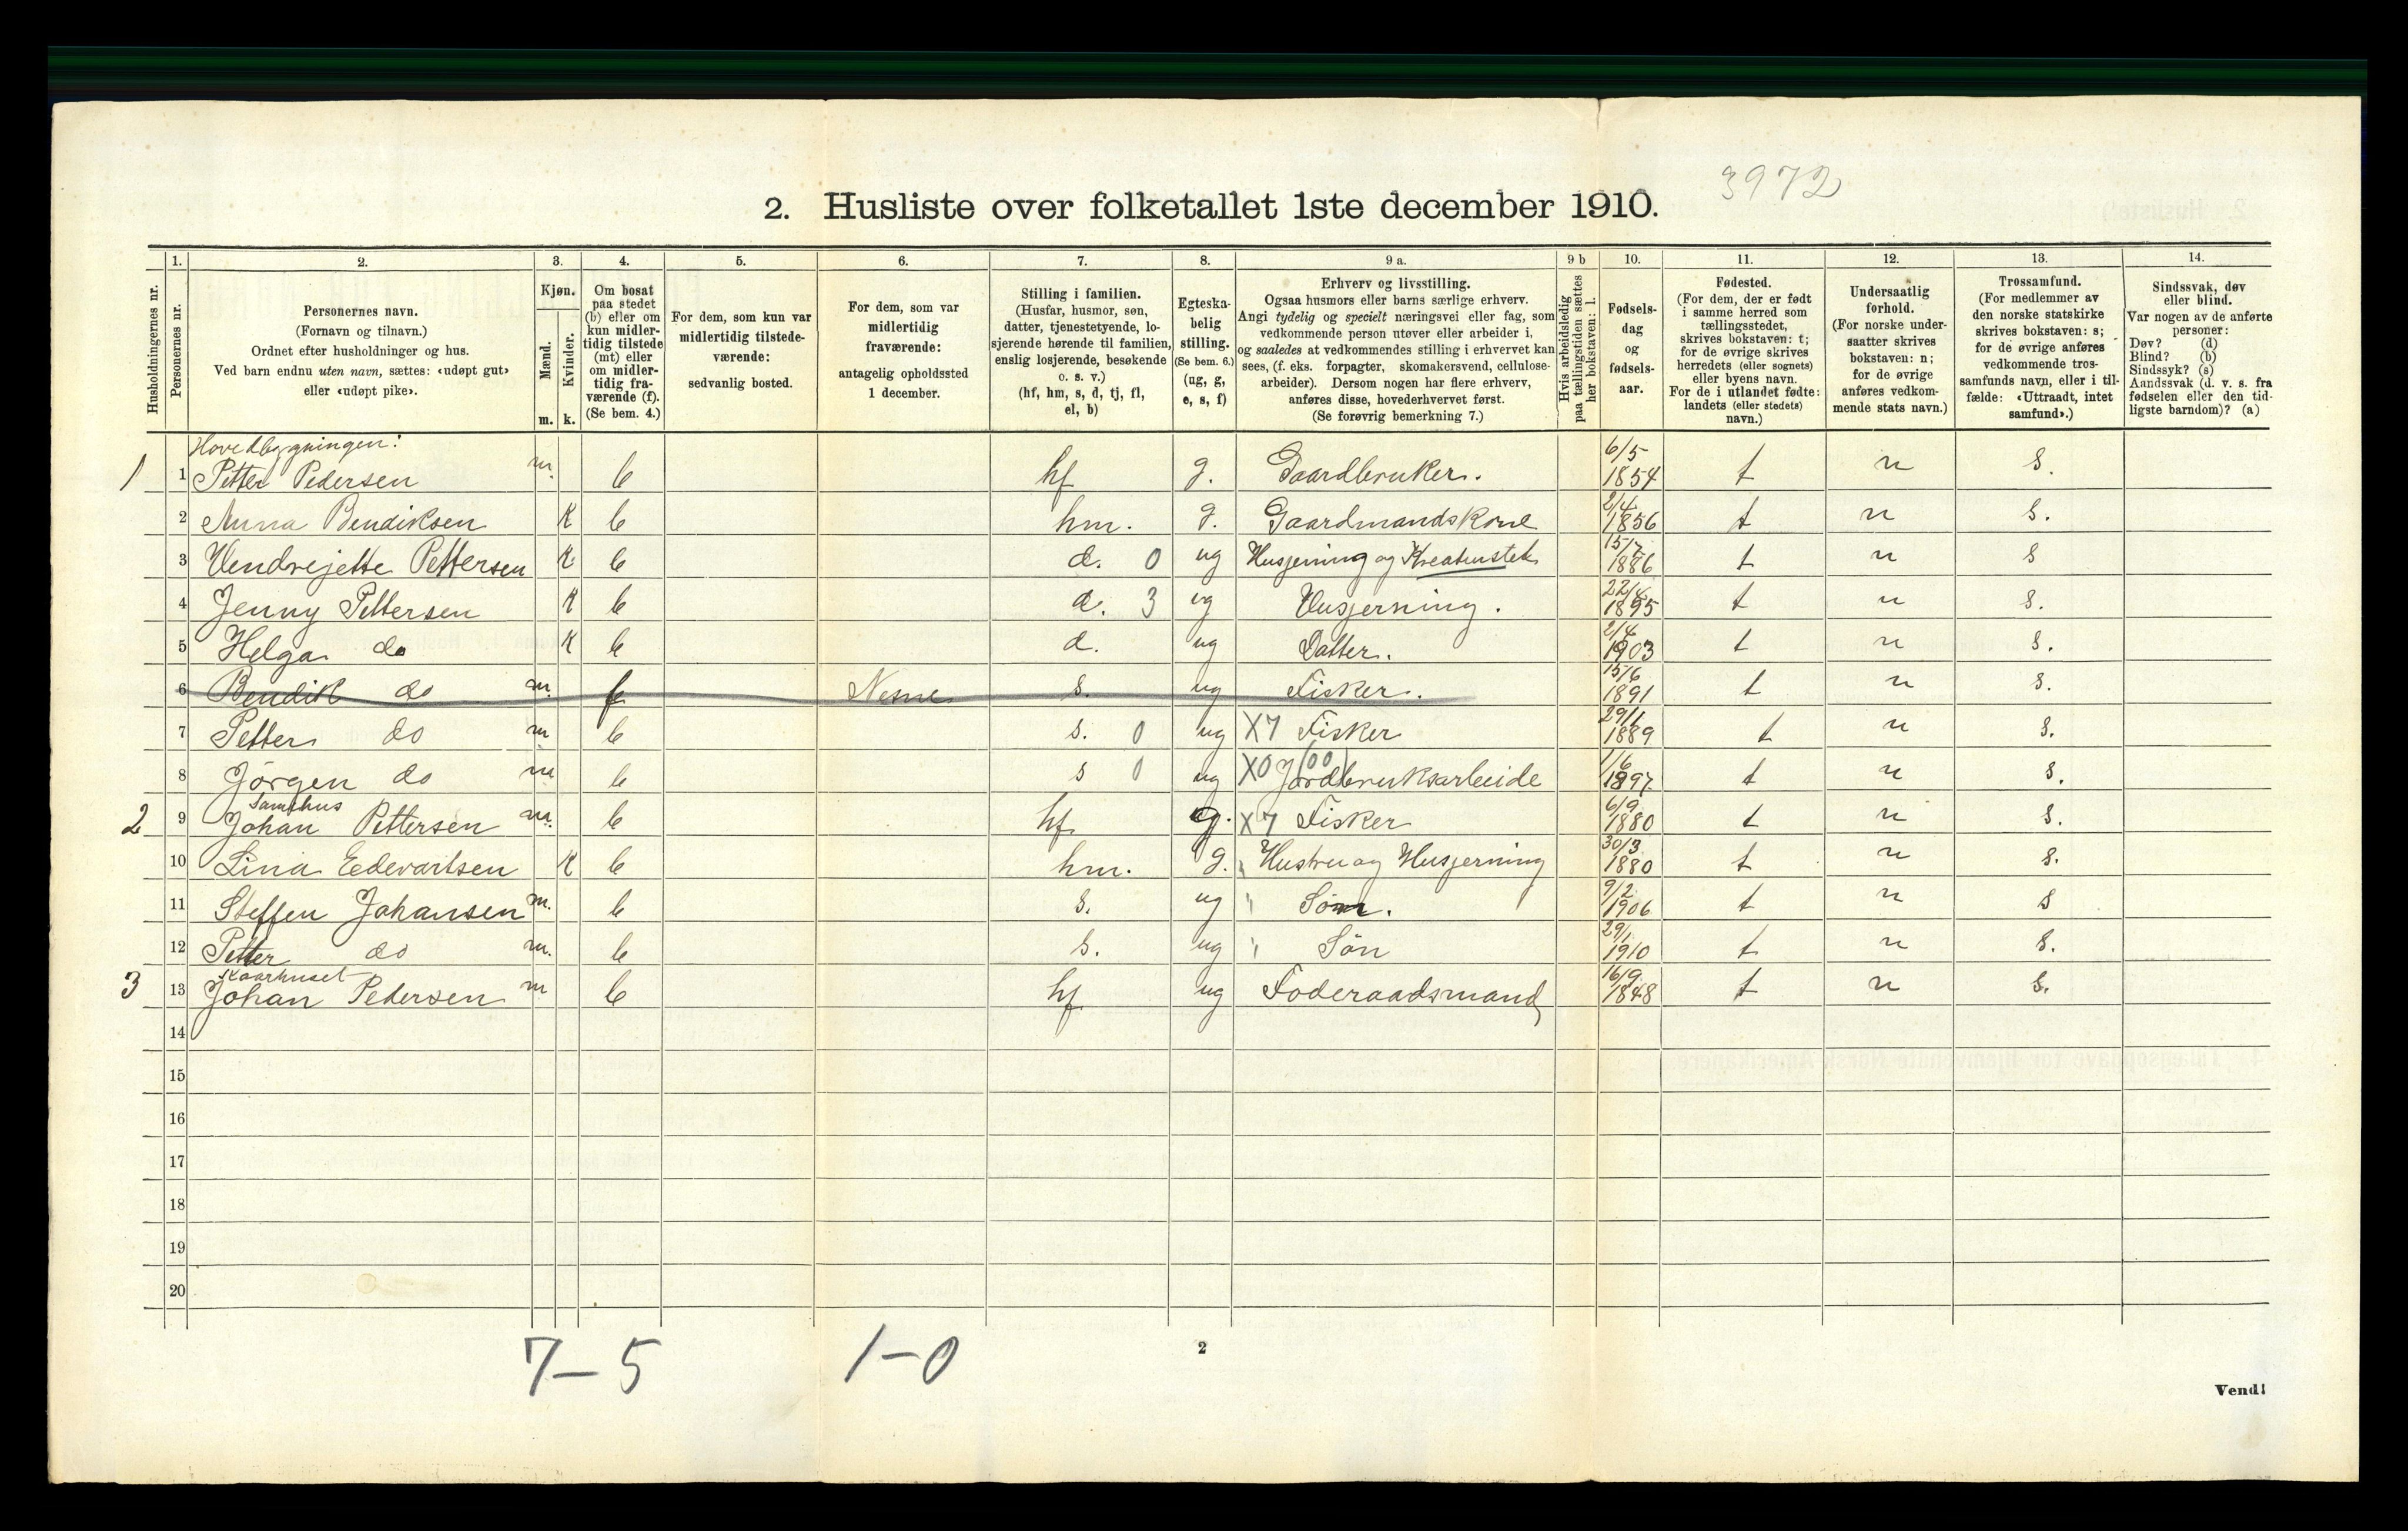 3972
2. Husliste over folketallet 1ste december 1910.
Husholdningernes nr.
1.
Personernes nr.
2.
Personernes navn.
(Fornavn og tilnavn.)
Ordnet efter husholdninger og hus.
Ved barn endnu uten navn, sættes: «udøpt gut»
eller «udøpt pike».
3.
Kjøn.
Mænd.
Kvinder.
m. k.
4.
Om bosat
paa stedet
(b) eller om
kun midler-
tidig tilstede
(mt) eller
om midler-
tidig fra-
værende (f).
(Se bem. 4.)
5.
For dem, som kun var
midlertidig tilstede-
værende:
sedvanlig bosted.
6.
For dem, som var
midlertidig
fraværende:
antagelig opholdssted
1 december.
7.
Stilling i familien.
(Husfar, husmor, søn,
datter, tjenestetyende, lo-
sjerende hørende til familien,
enslig losjerende, besøkende
o. s. v.)
(hf, hm, s, d, tj, fl,
el, b)
8.
Egteska-
belig
stilling.
(Se bem. 6.)
(ug, g,
e, s, f)
9 a.
Erhverv og livsstilling.
Ogsaa husmors eller barns særlige erhverv.
Angi tydelig og specielt næringsvei eller fag, som
vedkommende person utøver eller arbeider i,
og saaledes at vedkommendes stilling i erhvervet kan
sees, (f. eks. forpagter, skomakersvend, cellulose-
arbeider). Dersom nogen har flere erhverv,
anføres disse, hovederhvervet først.
(Se forøvrig bemerkning 7.)
9 b
Hvis arbeidsledig
paa tællingstiden sættes
her bokstaven: l.
10.
Fødsels-
dag
og
fødsels-
aar.
11.
Fødested.
(For dem, der er født
i samme herred som
tællingsstedet,
skrives bokstaven: t;
for de øvrige skrives
herredets (eller sognets)
eller byens navn.
For de i utlandet fødte:
landets (eller stedets)
navn.)
12.
Undersaatlig
forhold.
(For norske under-
saatter skrives
bokstaven: n;
for de øvrige
anføres vedkom-
mende stats navn.)
13.
Trossamfund.
(For medlemmer av
den norske statskirke
skrives bokstaven: s;
for de øvrige anføres
vedkommende tros-
samfunds navn, eller i til-
fælde: «Uttraadt, intet
samfund».)
14.
Sindssvak, døv
eller blind.
Var nogen av de anførte
personer:
Døv? (d)
Blind? (b)
Sindssyk? (s)
Aandssvak (d. v. s. fra
fødselen eller den tid-
ligste barndom)? (a)
Hovedbygningen:
1 1 Petter Pedersen m. b hf g. Gaardbruker. 6/5 1854 t n s.
2 Anna Bendiksen K b hm. g. Gaardmandskone 2/4 1856 t n s.
3 Hendrejette Pettersen K b d. 0 ug Husjerning og Kreaturstel 15/7 1886 t n s
4 Jenny Pettersen K b d. 3 ug Husjerning. 22/4 1895 t n s.
5 Helga do K b d. ug Datter. 2/4 1903 t n s.
6 Bendik do m. f Nesne s. ug Fisker. 15/6 1891 t n s.
7 Petter do m b s. 0 ug X7 Fisker 29/1 1889 t n s.
8 Jörgen do m b s 0 ug X0 (00) Jordbruksarbeide 1/6 1897. t n s.
Samehus
2 9 Johan Pettersen m. b hf g. X7 Fisker 6/9 1880 t n s.
10 Lina Eedevartsen K b hm. g. " Hustru og Husjerning 30/3 1880 t n s.
11 Steffen Johansen m. b s. ug " Sön. 9/2 1906 t n s
12 Petter do m. b s. ug " Sön 29/1 1910 t n s.
Kaarhuset
3 13 Johan Pedersen m b hf ug Foderaadsmand 16/9 1848 t n s.
14
15
16
17
18
19
20
7-5 1-0
2
Vend!